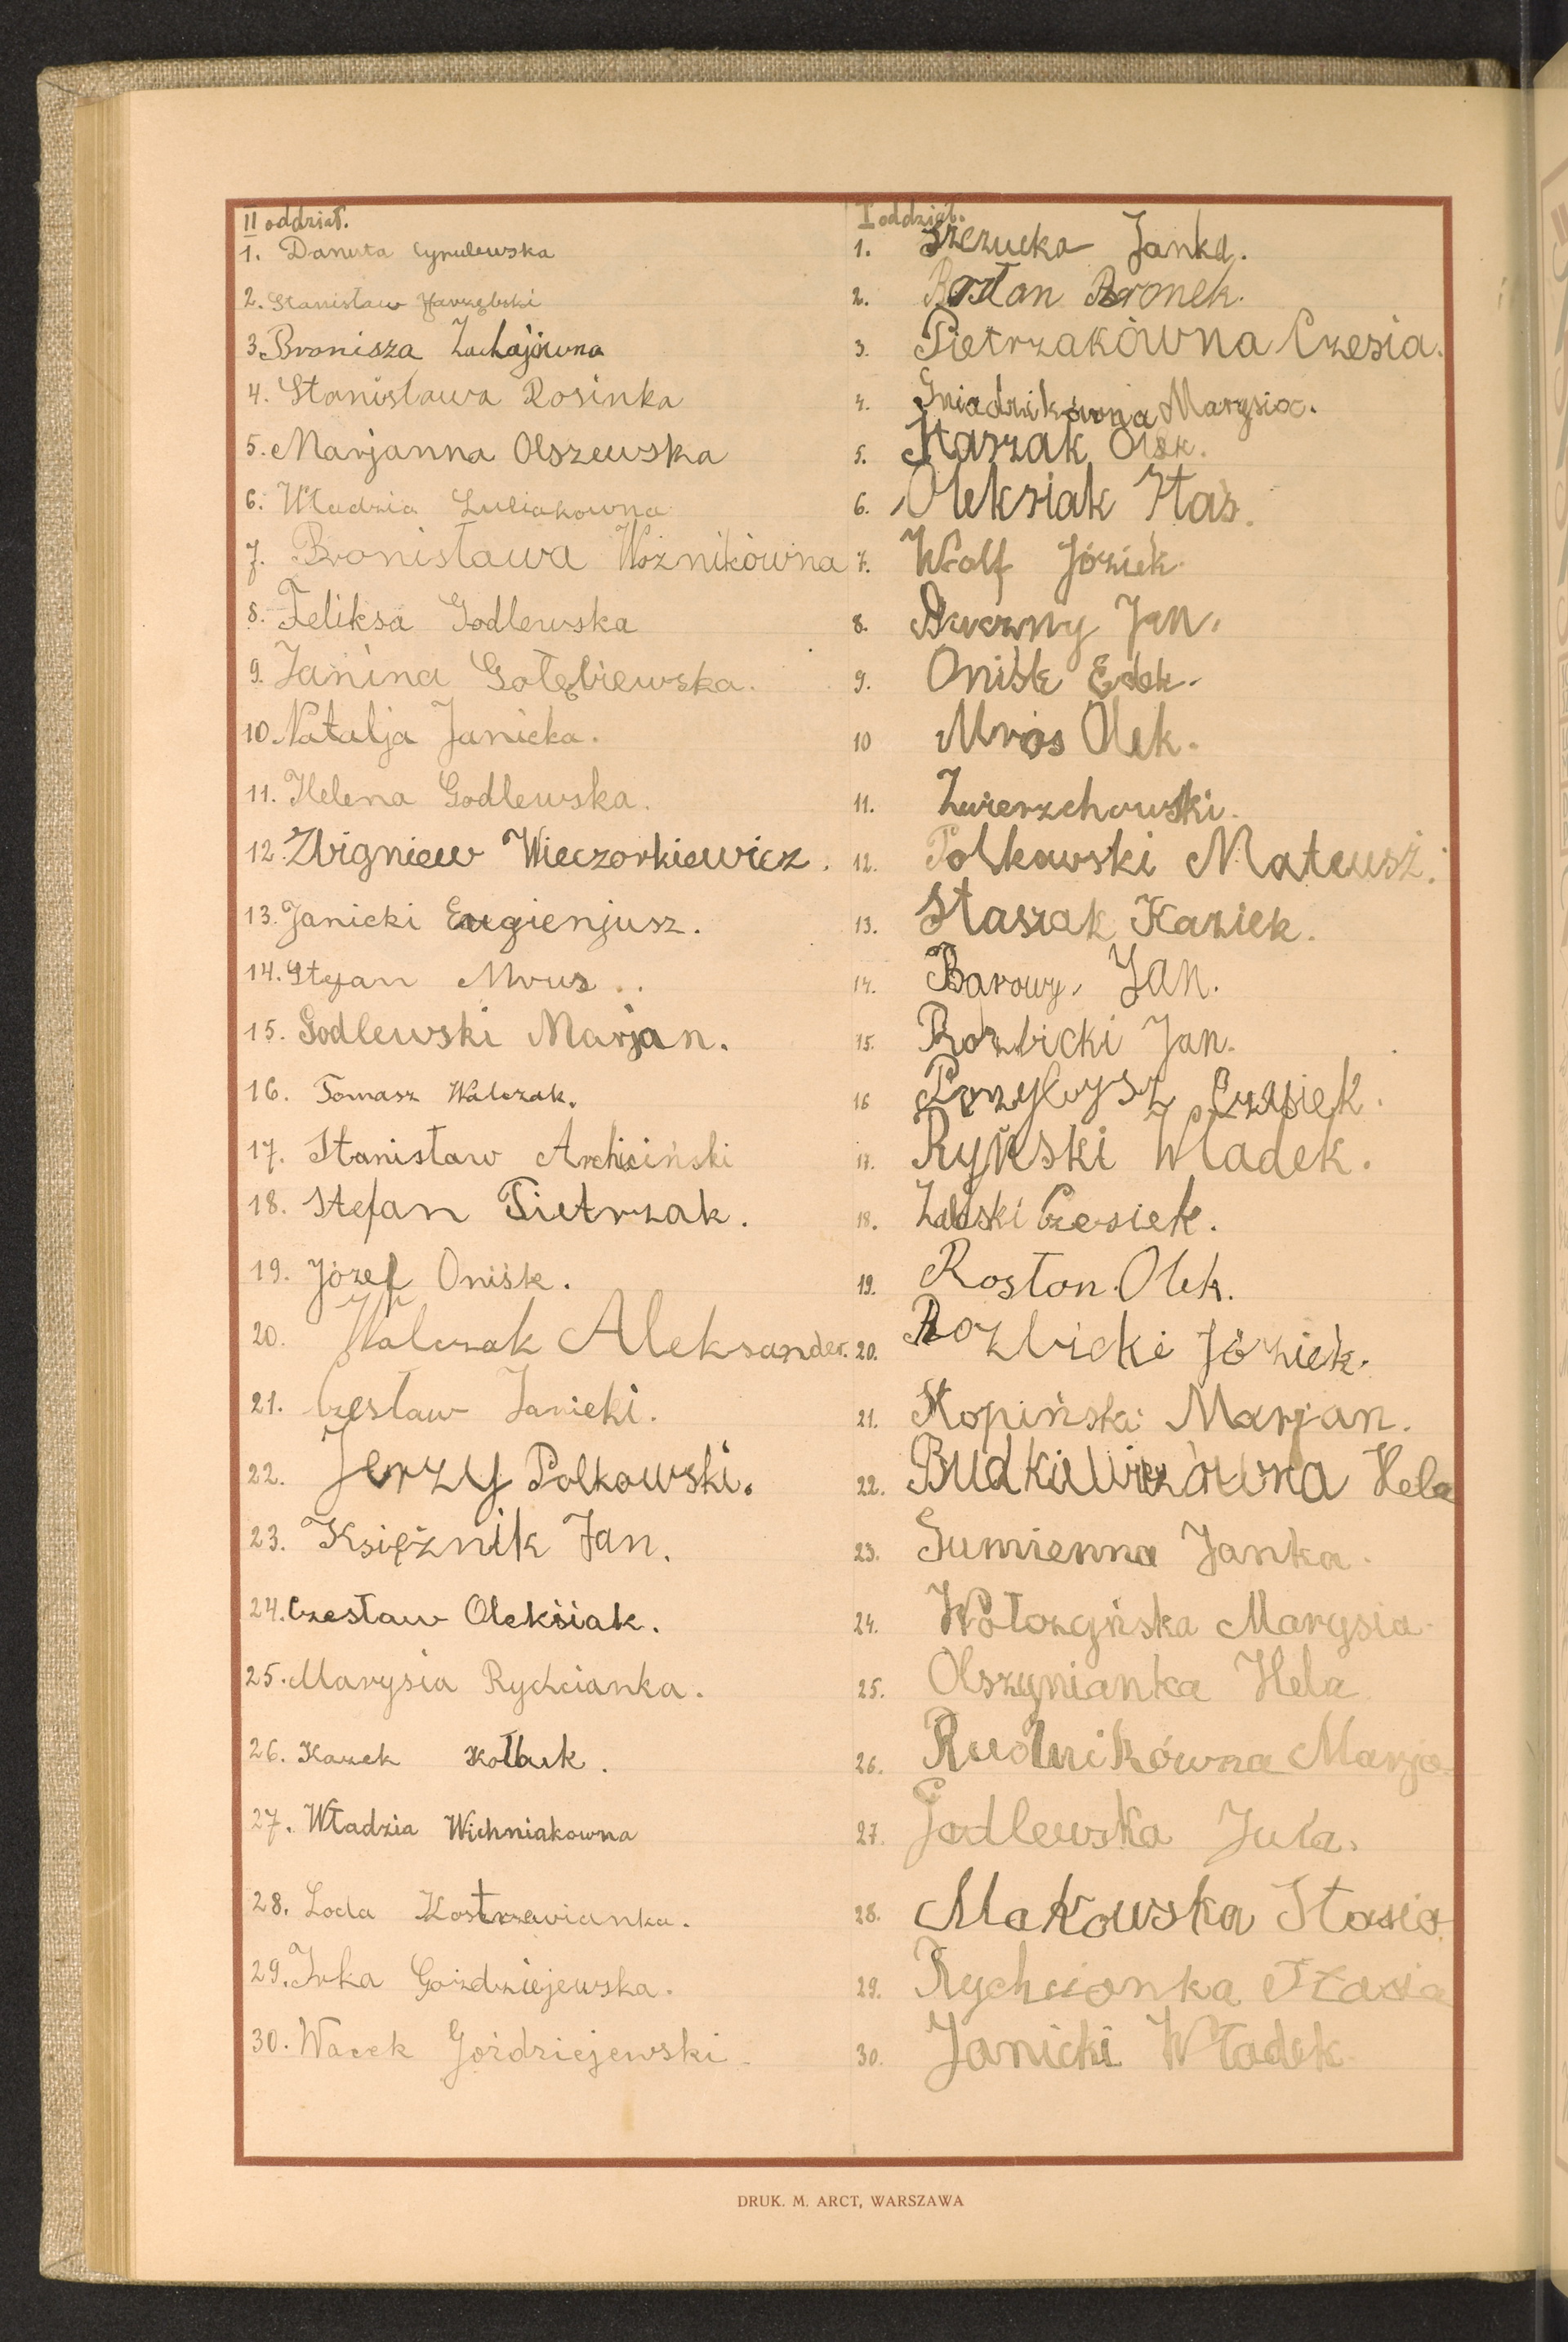 II oddział.
1. Danuta Cyrulewska
2. Stanisław Jarzębski
3. Bronisza Zuchajówna
4. Stanisława Rosinka
5. Marjanna Olszewska
6. Władzia Luliakowna
7. Bronisława Woźnikówna
8. Feliksa Godlewska
9. Janina Gołębiewska.
10. Natalja Janicka.
11. Helena Godlewska.
12. Zbigniew Wieczorkiewicz.
13. Janicki Eugienjusz.
14. Stefan Mrus..
15. Godlewski Marjan.
16. Tomasz Walczak.
17. Stanisław Archiciński
18. Stefan Pietrzak.
19. Józef Oniśk.
20. Walczak Aleksander.
21. Czesław Janicki.
22. Jerzy Polkowski.
23. Księżnik Jan.
24. Czesław Oleksiak.
25. Marysia Rychcianka.
26. Kazek Kołbuk.
27. Władzia Wichniakowna
28. Loda Kostrzewianka.
29. Irka Gożdziejewska.
30. Wacek Gożdziejewski.
I oddział.
1. Szczucka Janka.
2. Rosłon Bronek.
3. Pietrzakówna Czesia.
4. Gniadzikówna Marysia.
5. Staszak Olek.
6. Oleksiak Staś.
7. Wolf Józiek.
8. Jan.
9. Oniśk Edek.
10 Mrós Olek.
11. Zwierzchowski.
12. Polkowski Mateusz.
13. Staszak Kaziek.
14. Barowy, Jan.
15. Rozbicki Jan.
16 Przybysz Czesiek.
17. Ryński Władek.
18. Zalski Czesiek.
19. Rosłon Olek.
20. Rozbicki Józiek.
21. Kopiński Marjan.
22. Budkiewiczówna Hela
23. Sumienna Janka.
24. Wołozyńska Marysia.
25. Olszynianka Hela
26. Rudnikówna Marja
27. Godlewska Jula.
28. Makowska Stasia.
29. Rychcionka Stasia
30. Janicki Władek.
DRUK. M. ARCT, WARSZAWA